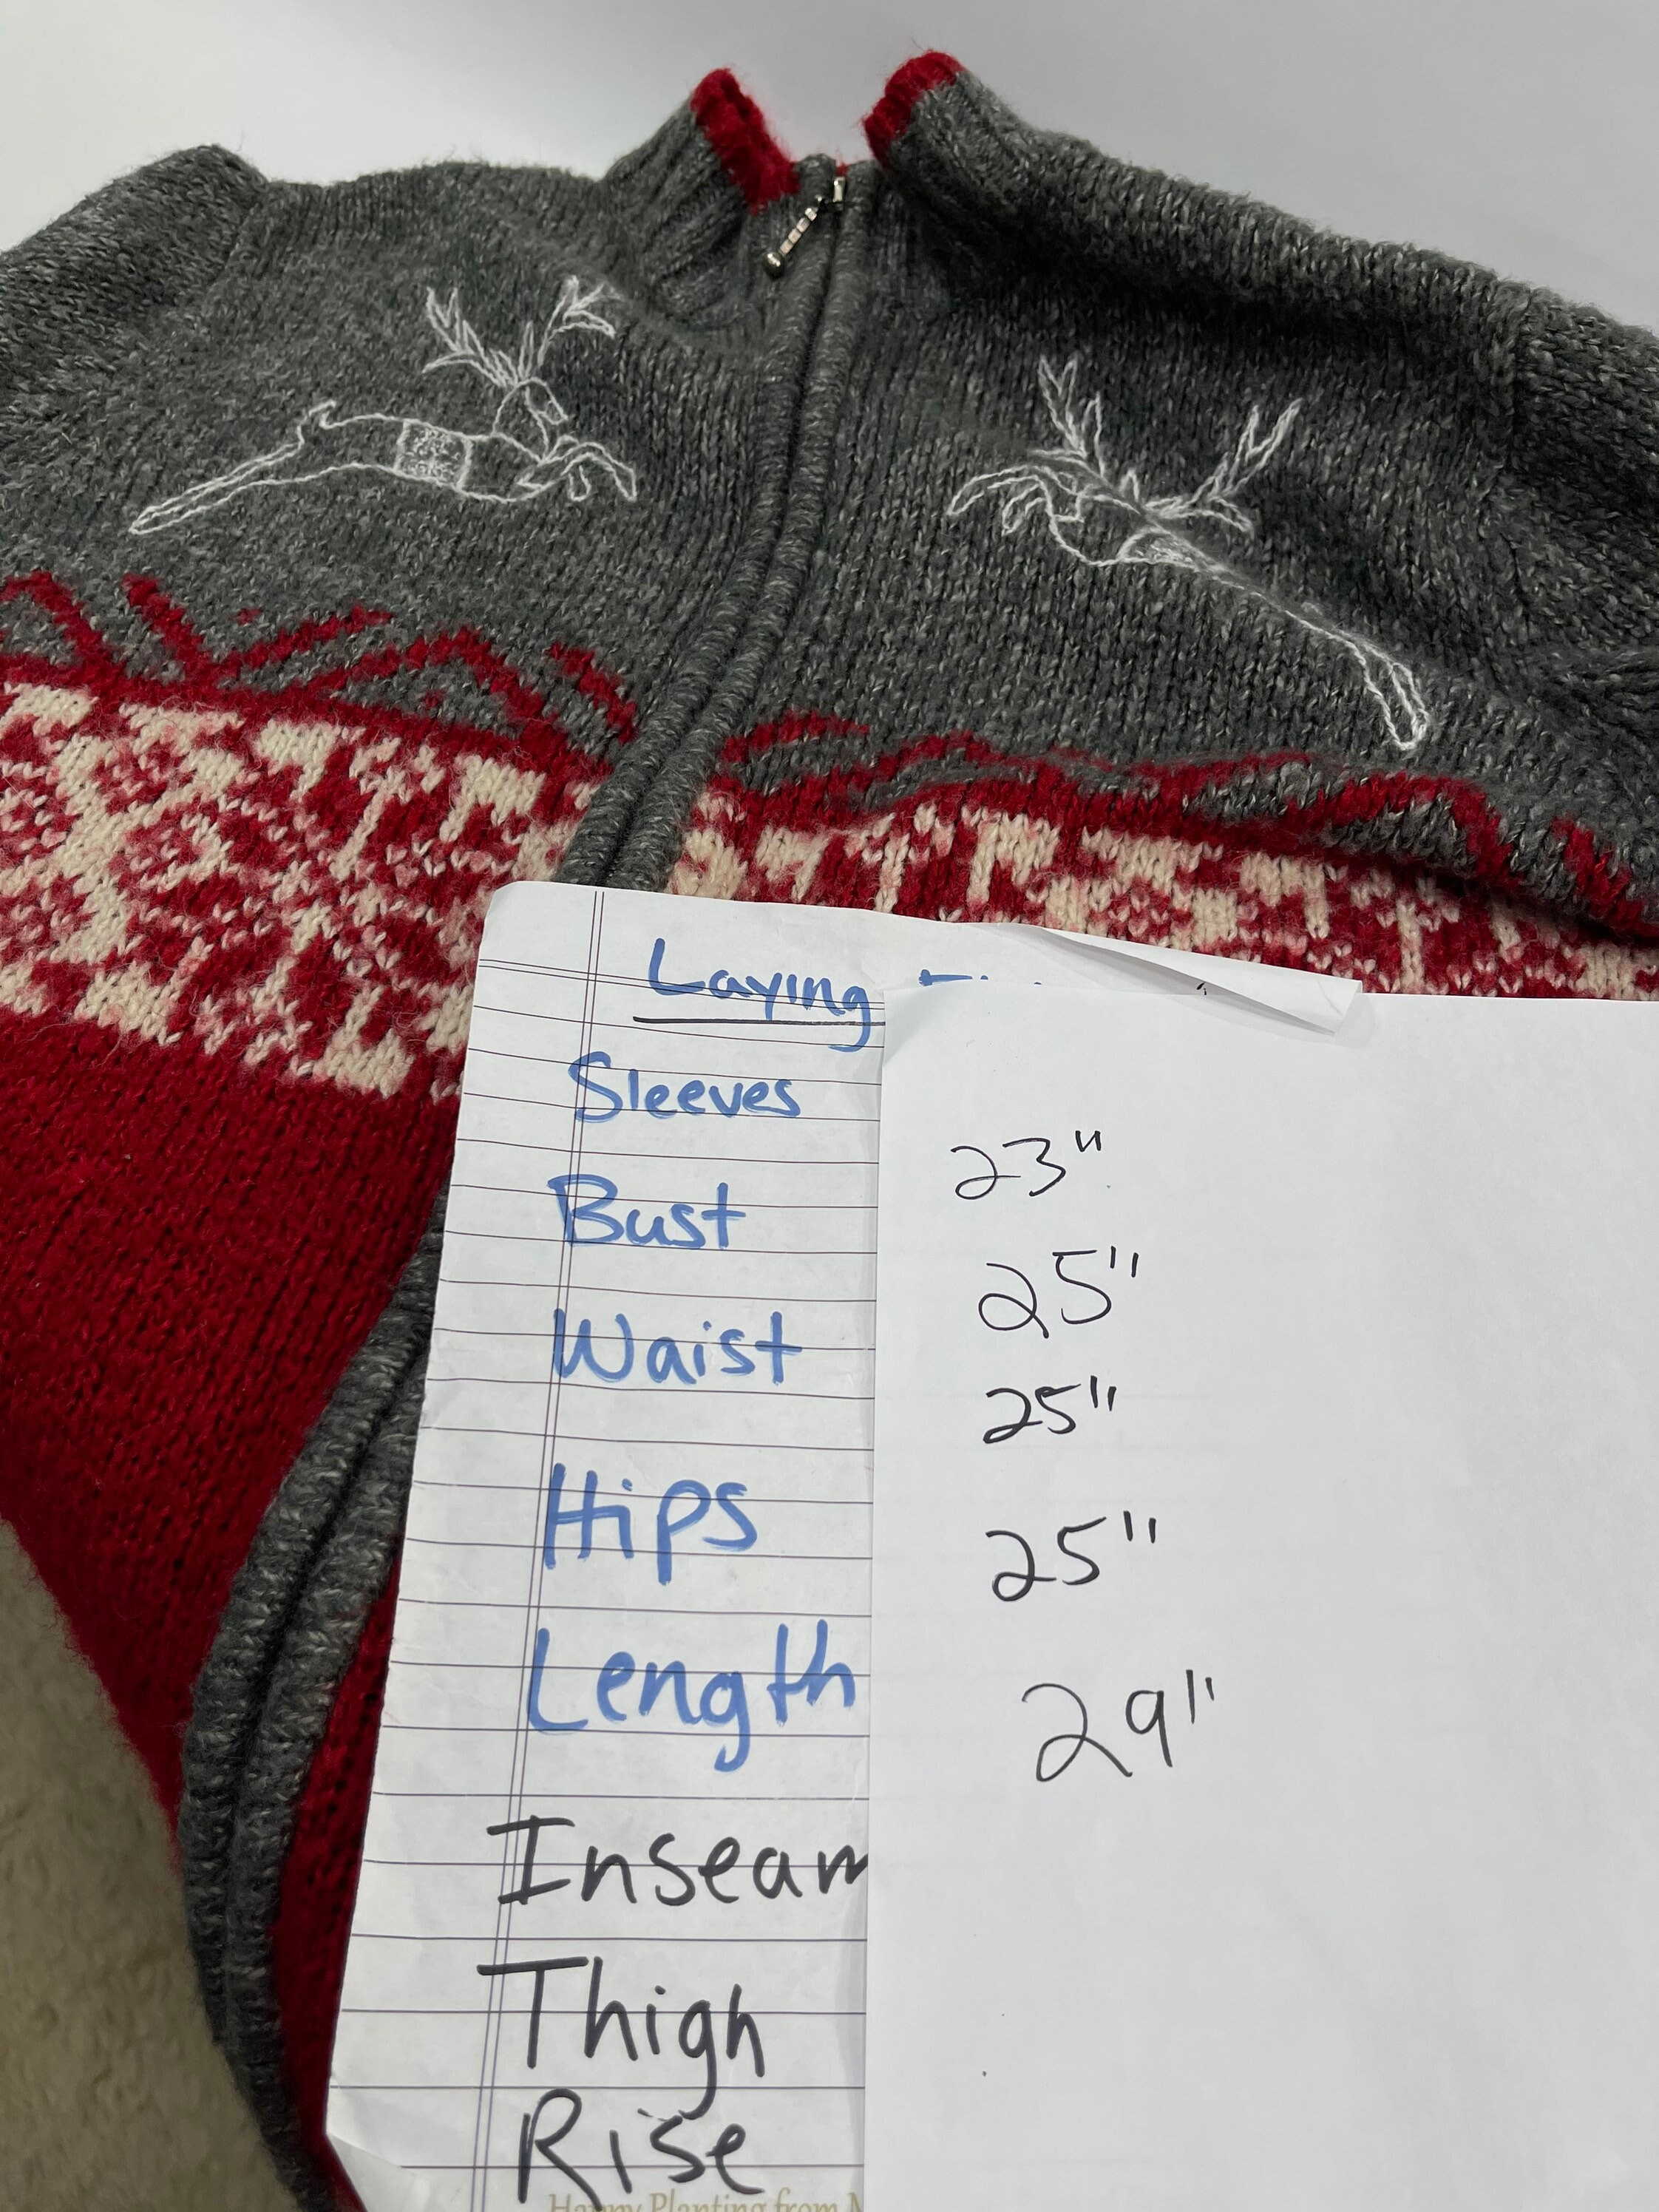 Laying
Sleeves 23"
Bust 25"
Waist 25"
Hips 25"
Length 29"
Inseam
Thigh
Rise
Happy Planting from